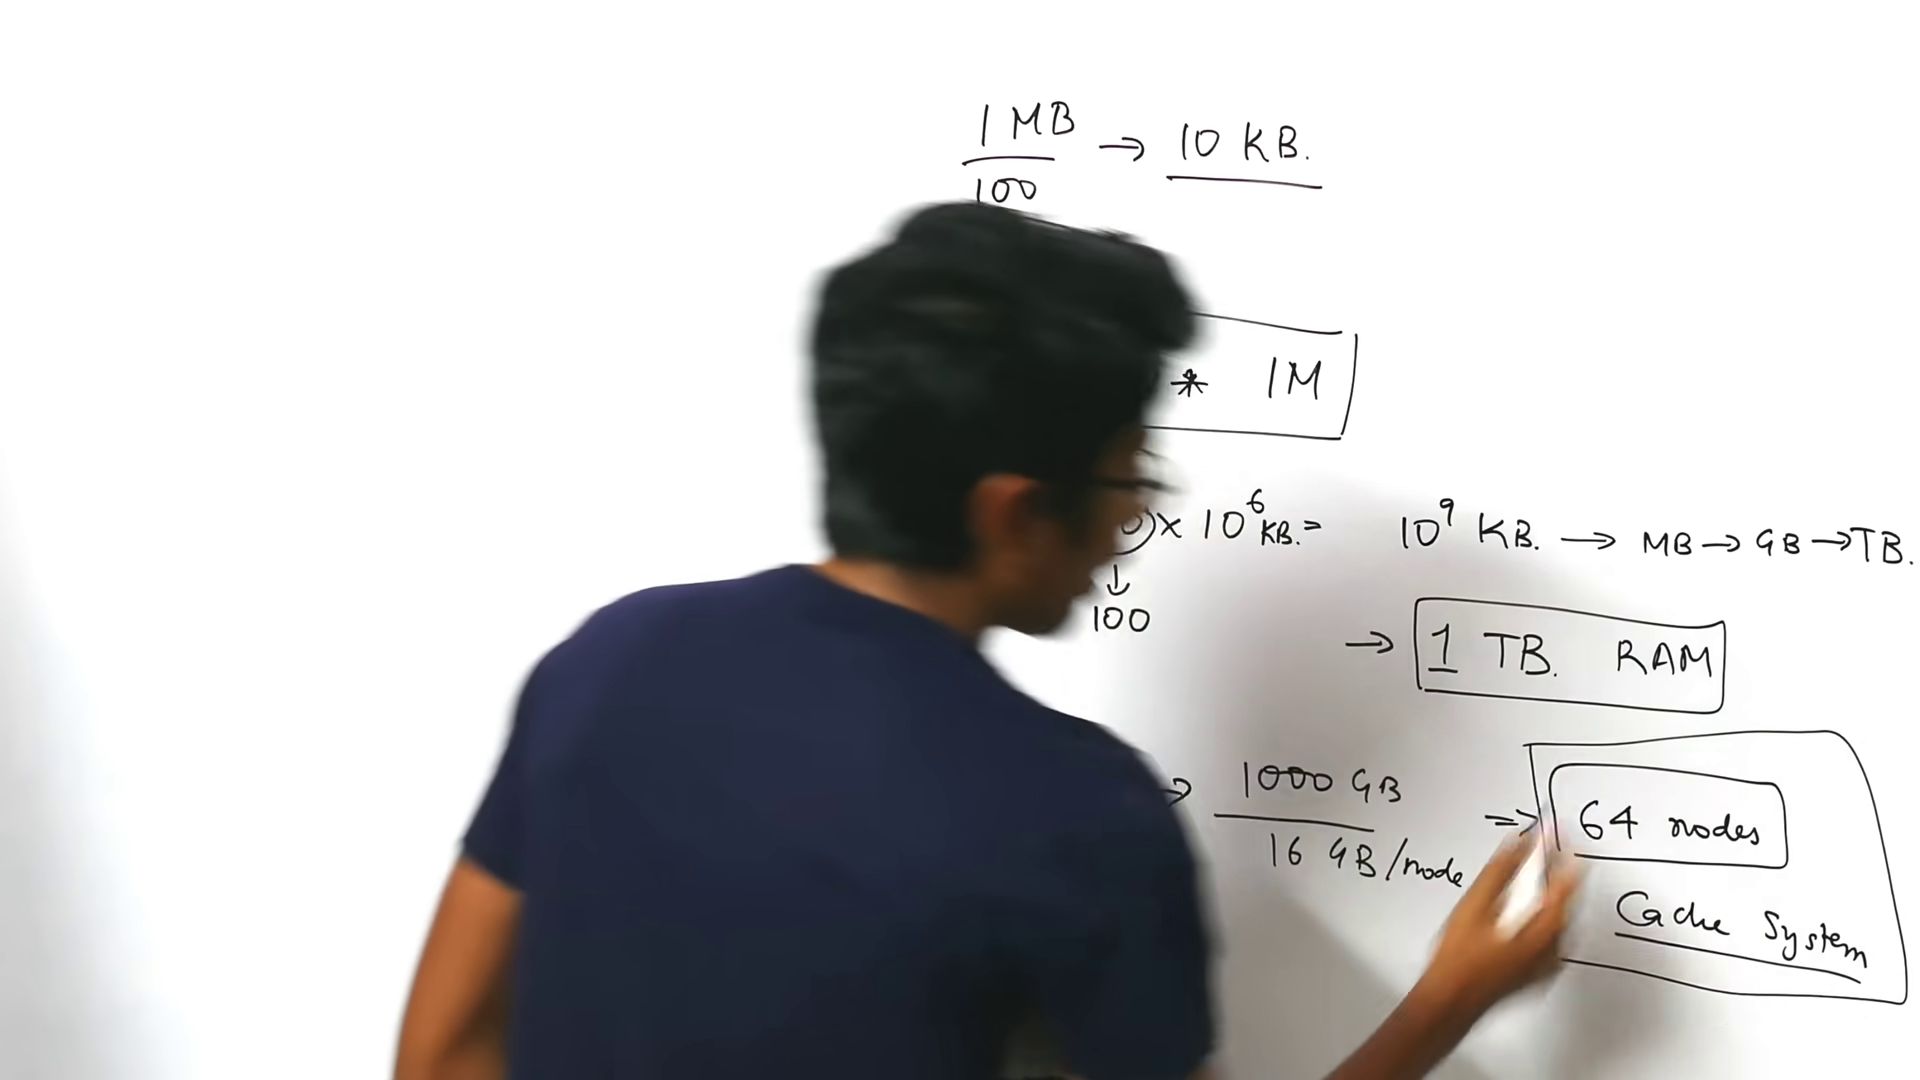 1 MB → 10 KB.
100
* 1M
0) × 10⁶ KB. = 10⁹ KB. → MB → GB → TB.
↓
100
→ 1 TB. RAM
→ 1000 GB => 64 nodes
16 GB/node
Cache System